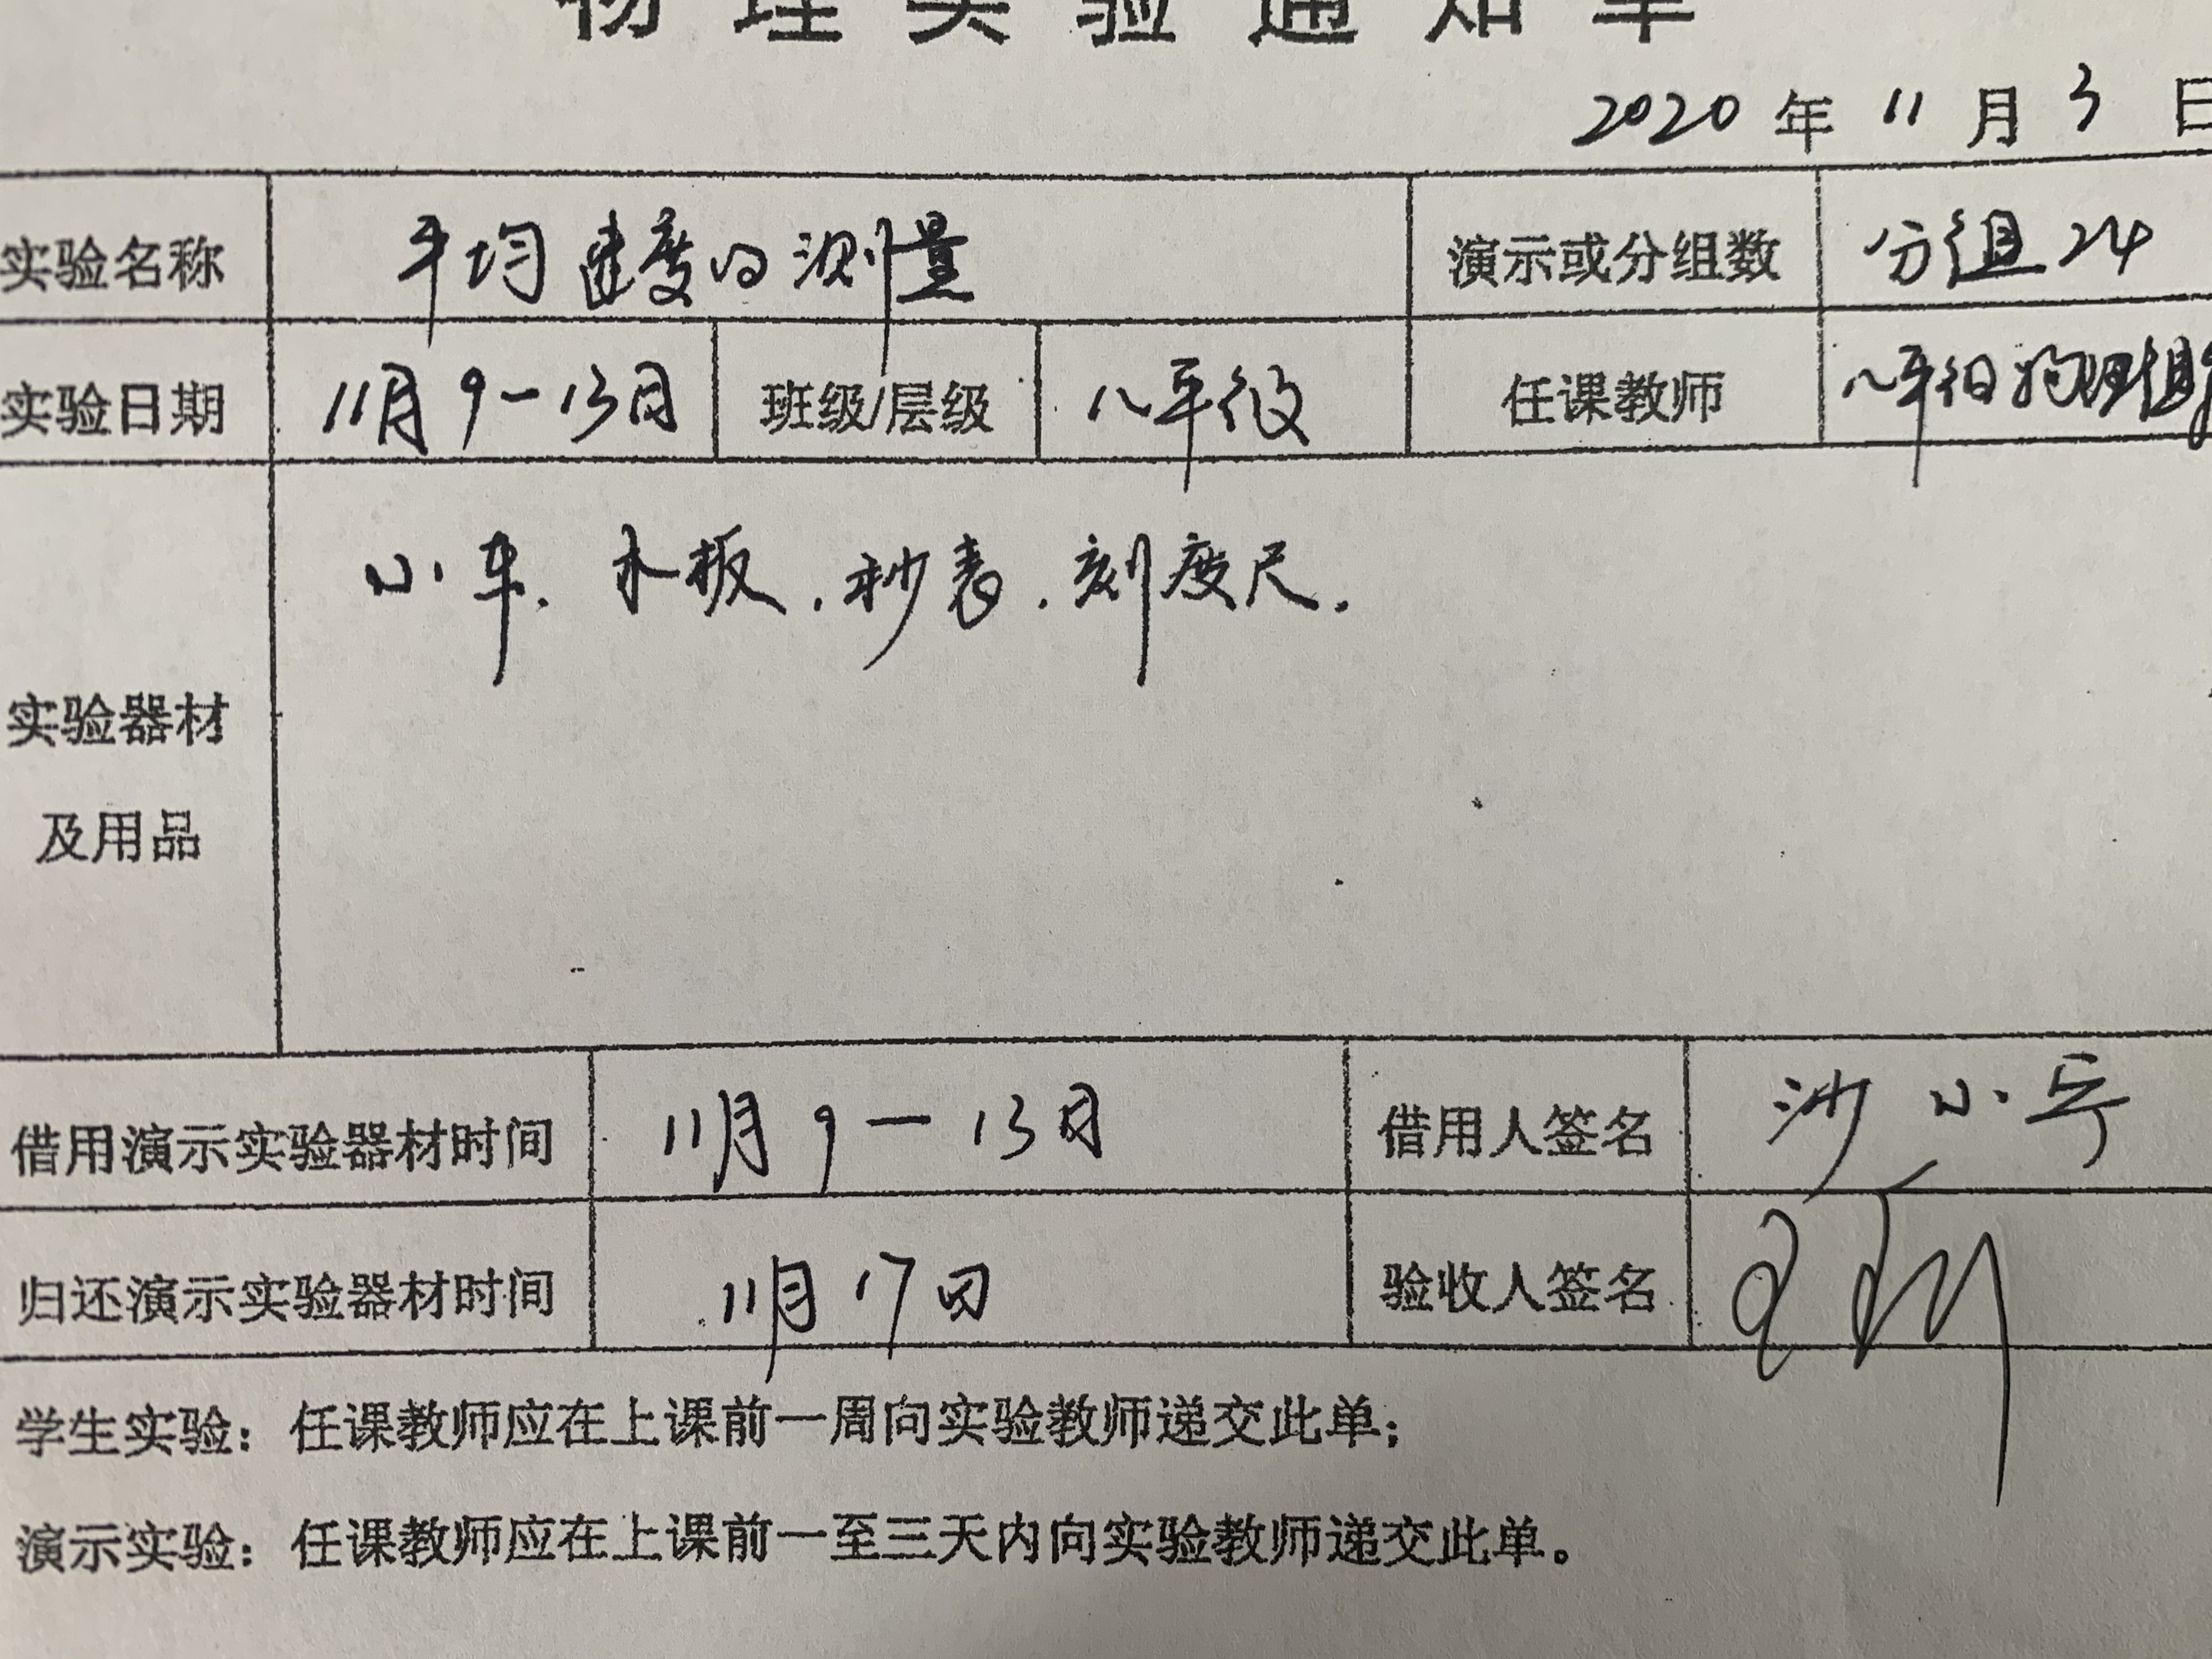 物理实验通知单
2020年11月3日
实验名称 平均速度的测量 演示或分组数 分组24
实验日期 11月9-13日 班级/层级 八年级 任课教师 八年级物理组
小车.木板.秒表.刻度尺.
实验器材
及用品
借用演示实验器材时间 11月9-13日 借用人签名
归还演示实验器材时间 11月17日 验收人签名
学生实验：任课教师应在上课前一周向实验教师递交此单；
演示实验：任课教师应在上课前一至三天内向实验教师递交此单。